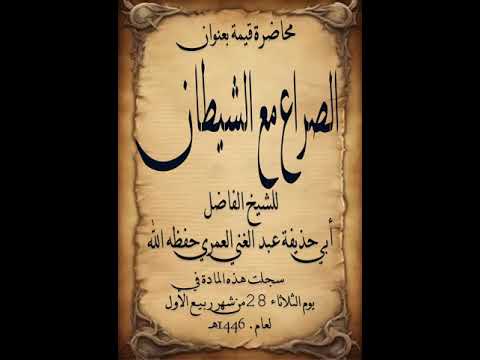 محاضرة قيمة بعنوان
الصراع مع الشيطان
للشيخ الفاضل
أبي حذيفة عبد الغني العمري حفظه الله
سجلت هذه المادة في
يوم الثلاثاء 28 من شهر ربيع الأول
لعام . 1446هـ